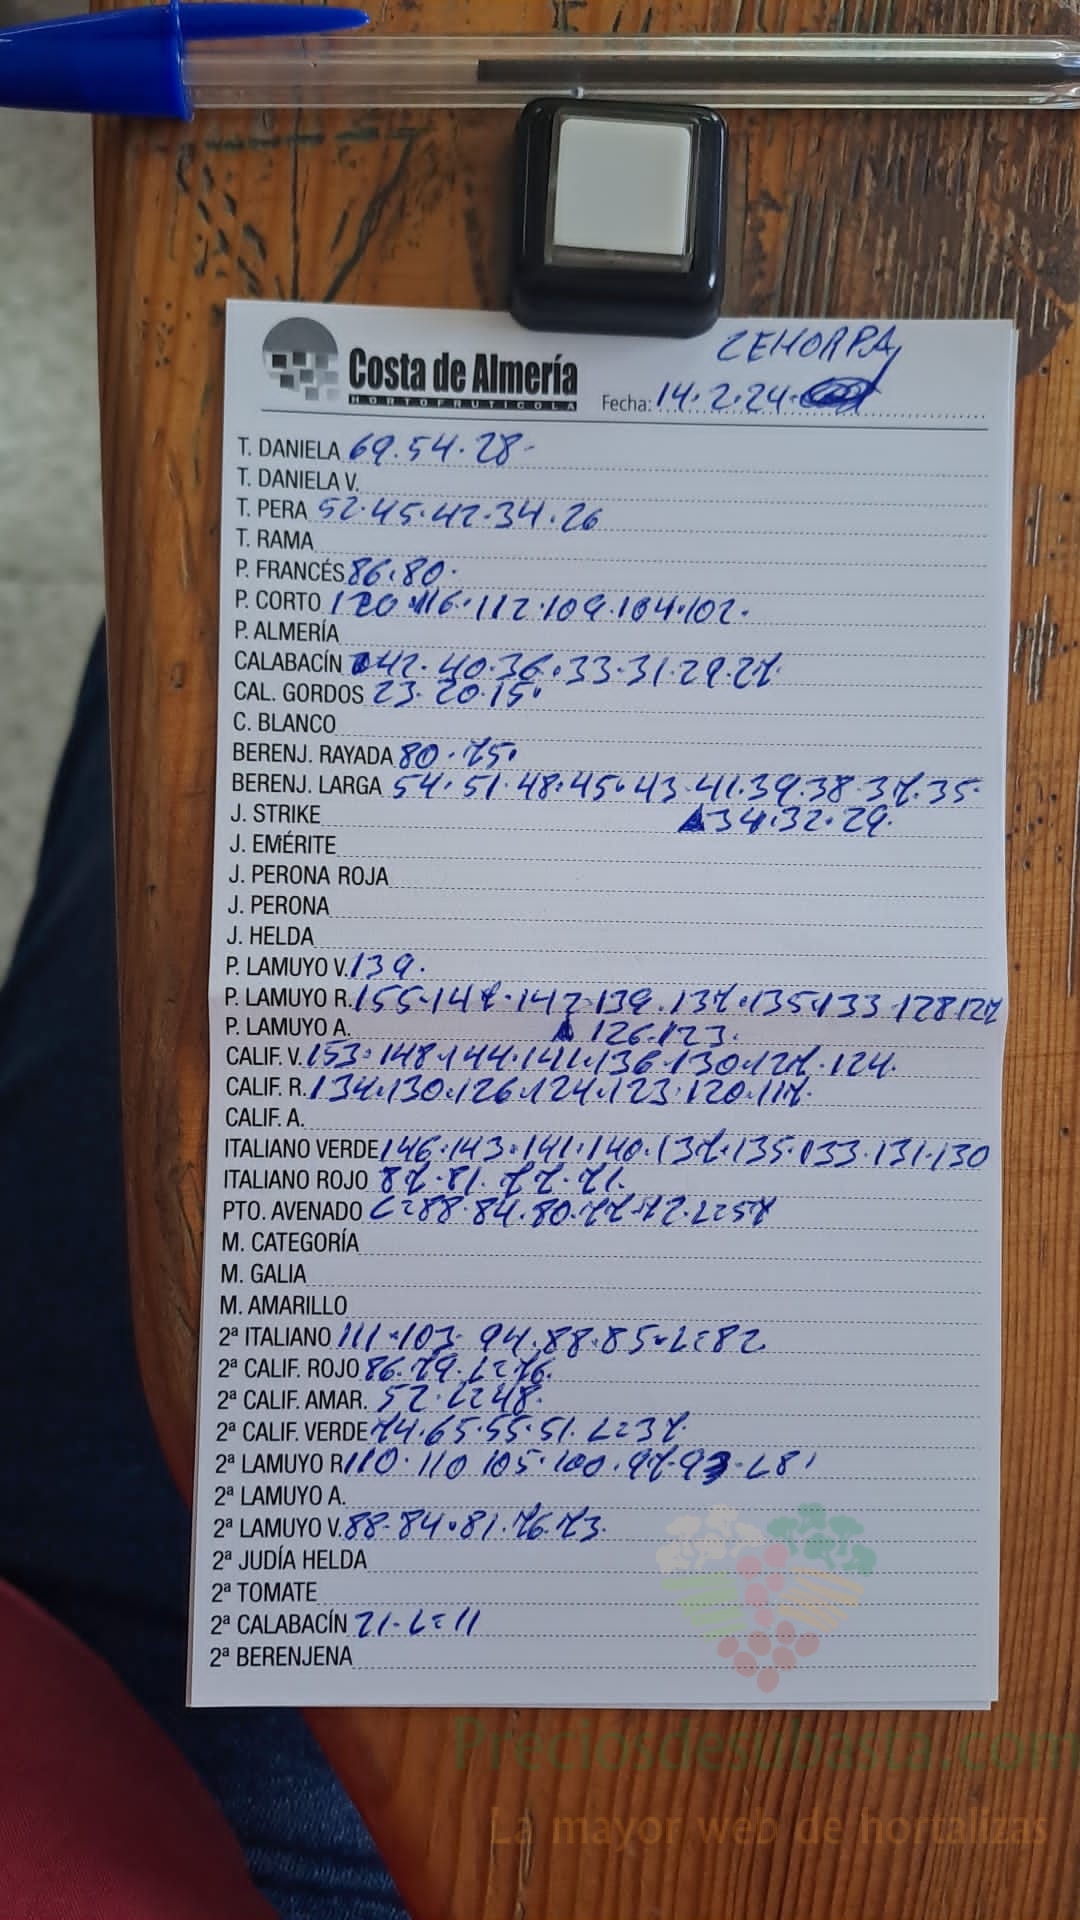 ZEHORPA
Costa de Almería
HORTOFRUTICOLA
Fecha: 14.2.24.
T. DANIELA 69.54.28-
T. DANIELA V.
T. PERA 52.45.42.34.26
T. RAMA
P. FRANCÉS 86.80.
P. CORTO 120.116.112.109.104.102.
P. ALMERÍA
CALABACÍN 42.40.36.33.31.29.27.
CAL. GORDOS 23.20.15.
C. BLANCO
BERENJ. RAYADA 80.75.
BERENJ. LARGA 54.51.48.45.43.41.39.38.37.35.
J. STRIKE 34.32.29.
J. EMÉRITE
J. PERONA ROJA
J. PERONA
J. HELDA
P. LAMUYO V. 139.
P. LAMUYO R. 155.147.142.139.137.135.133.128.127
P. LAMUYO A. 126.123.
CALIF. V. 153.148.144.141.136.130.127.124.
CALIF. R. 134.130.126.124.123.120.117.
CALIF. A.
ITALIANO VERDE 146.143.141.140.137.135.133.131.130
ITALIANO ROJO 87.81.77.71.
PTO. AVENADO C=88.84.80.77.72.L=57
M. CATEGORÍA
M. GALIA
M. AMARILLO
2ª ITALIANO 111.103.94.88.85.L=82
2ª CALIF. ROJO 86.79.L=76.
2ª CALIF. AMAR. 52.L=48.
2ª CALIF. VERDE 74.65.55.51.L=37.
2ª LAMUYO R 110.110 105.100.97.93-L81
2ª LAMUYO A.
2ª LAMUYO V. 88.84.81.76.73.
2ª JUDÍA HELDA
2ª TOMATE
2ª CALABACÍN 21.L=11
2ª BERENJENA
Preciosdesubasta.com
La mayor web de hortalizas